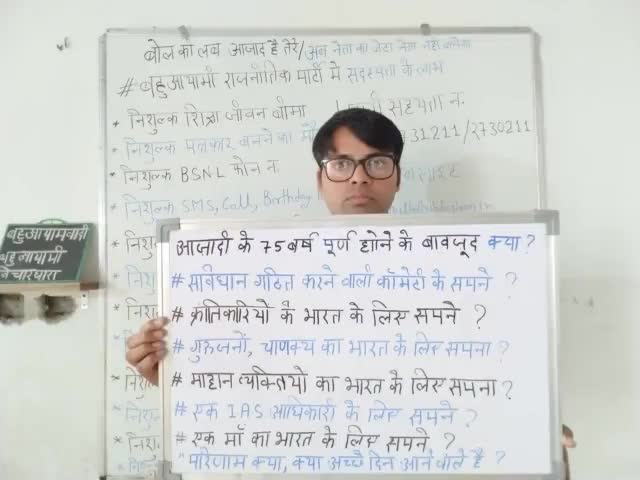 बोल का लब आजाद है तेरे/अब नेता का बेटा नेता नहीं बनेगा
# बहुआयामी राजनीतिक पार्टी मे सदस्यता के लाभ
* निशुल्क शिक्षा जीवन बीमा
सहायता न.
* निशुल्क पत्रकार बनने का
31211/2730211
* निशुल्क BSNL फोन न
* निशुल्क SMS, Call, Birthday
बहुआयामवादी
बहुआयामी
विचारधारा
आजादी के 75 बर्ष पूर्ण होने के बावजूद क्या?
# संविधान गठित करने वाली कॉमेटी के सपने ?
# क्रांतिकारियों के भारत के लिए सपने ?
# गुरुजनों, चाणक्य का भारत के लिए सपना ?
# माहान व्यक्तियों का भारत के लिए सपना ?
# एक IAS अधिकारी के लिए सपने ?
# एक माँ का भारत के लिए सपने ?
" परिणाम क्या, क्या अच्छे दिन आने वाले है ?